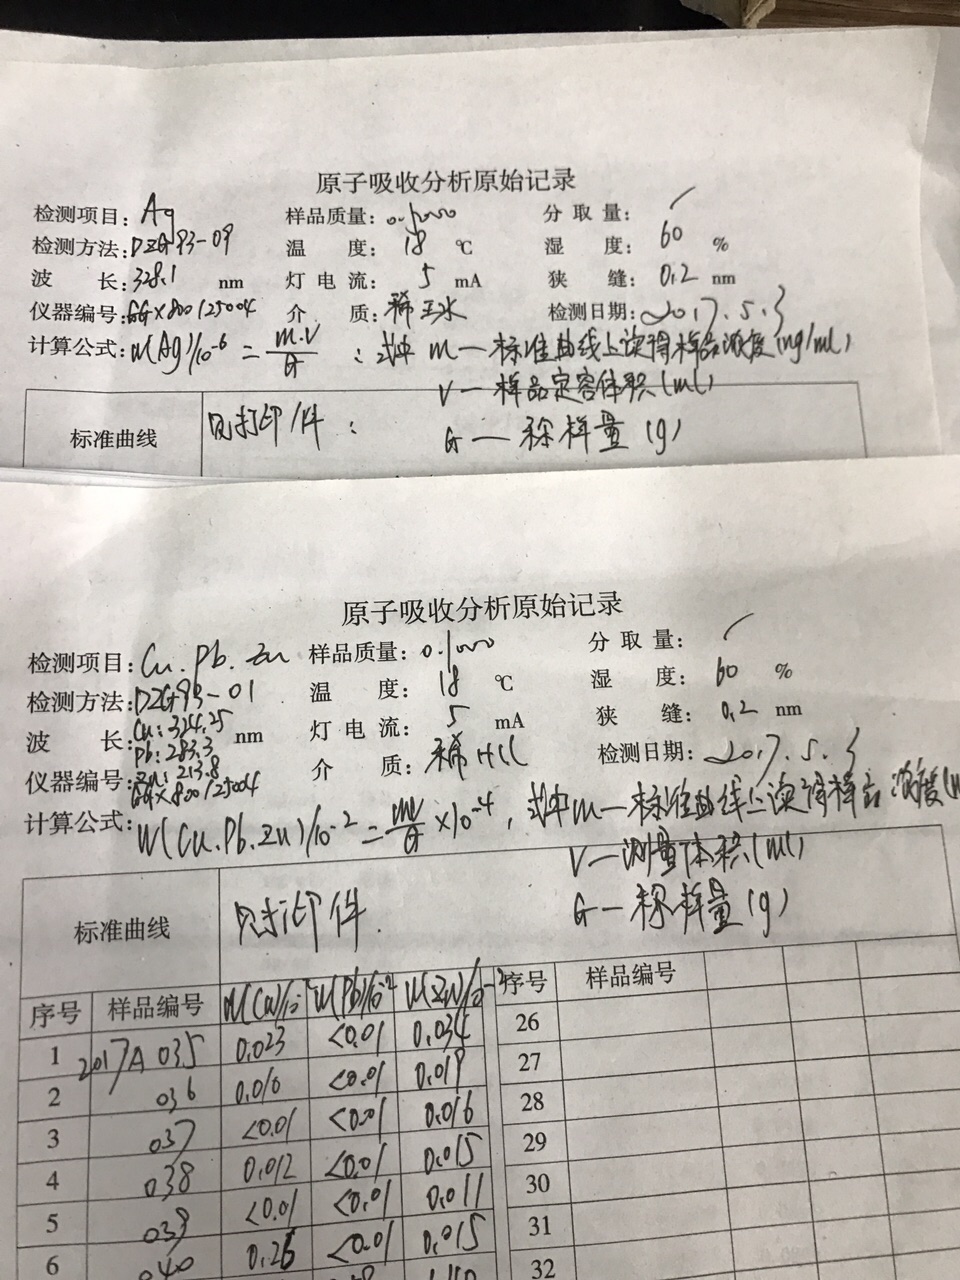 原子吸收分析原始记录
检测项目: Ag 样品质量: 0.1000 分取量: /
检测方法: DZG93-09 温度: 18 ℃ 湿度: 60 %
波长: 328.1 nm 灯电流: 5 mA 狭缝: 0.2 nm
仪器编号: GGX800/25004 介质: 稀王水 检测日期: 2017.5.3
计算公式: W(Ag)/10-6 = m.V/G ; 式中 m—标准曲线上读得样品浓度(ng/ml)
V—样品定容体积(ml)
标准曲线 见打印件: G—称样量(g)
原子吸收分析原始记录
检测项目: Cu.Pb.Zn 样品质量: 0.1000 分取量: /
检测方法: DZG93-01 温度: 18 ℃ 湿度: 60 %
波长: Cu: 324.25 Pb: 283.3 Zn: 213.8 nm 灯电流: 5 mA 狭缝: 0.2 nm
仪器编号: GGX800/25004 介质: 稀HCl 检测日期: 2017.5.3
计算公式: W(Cu.Pb.Zn)/10-2 = mV/G ×10-4, 式中 m—标准曲线上读得样品浓度
V—测量体积(ml)
标准曲线 见打印件. G—称样量(g)
序号 样品编号 W(Cu)/10-2 W(Pb)/10-2 W(Zn)/10-2 序号 样品编号
1 2017A 035 0.023 <0.01 0.034 26
2 036 0.010 <0.01 0.019 27
3 037 <0.01 <0.01 0.016 28
4 038 0.012 <0.01 0.015 29
5 039 <0.01 <0.01 0.011 30
6 040 0.26 <0.01 0.015 31
32